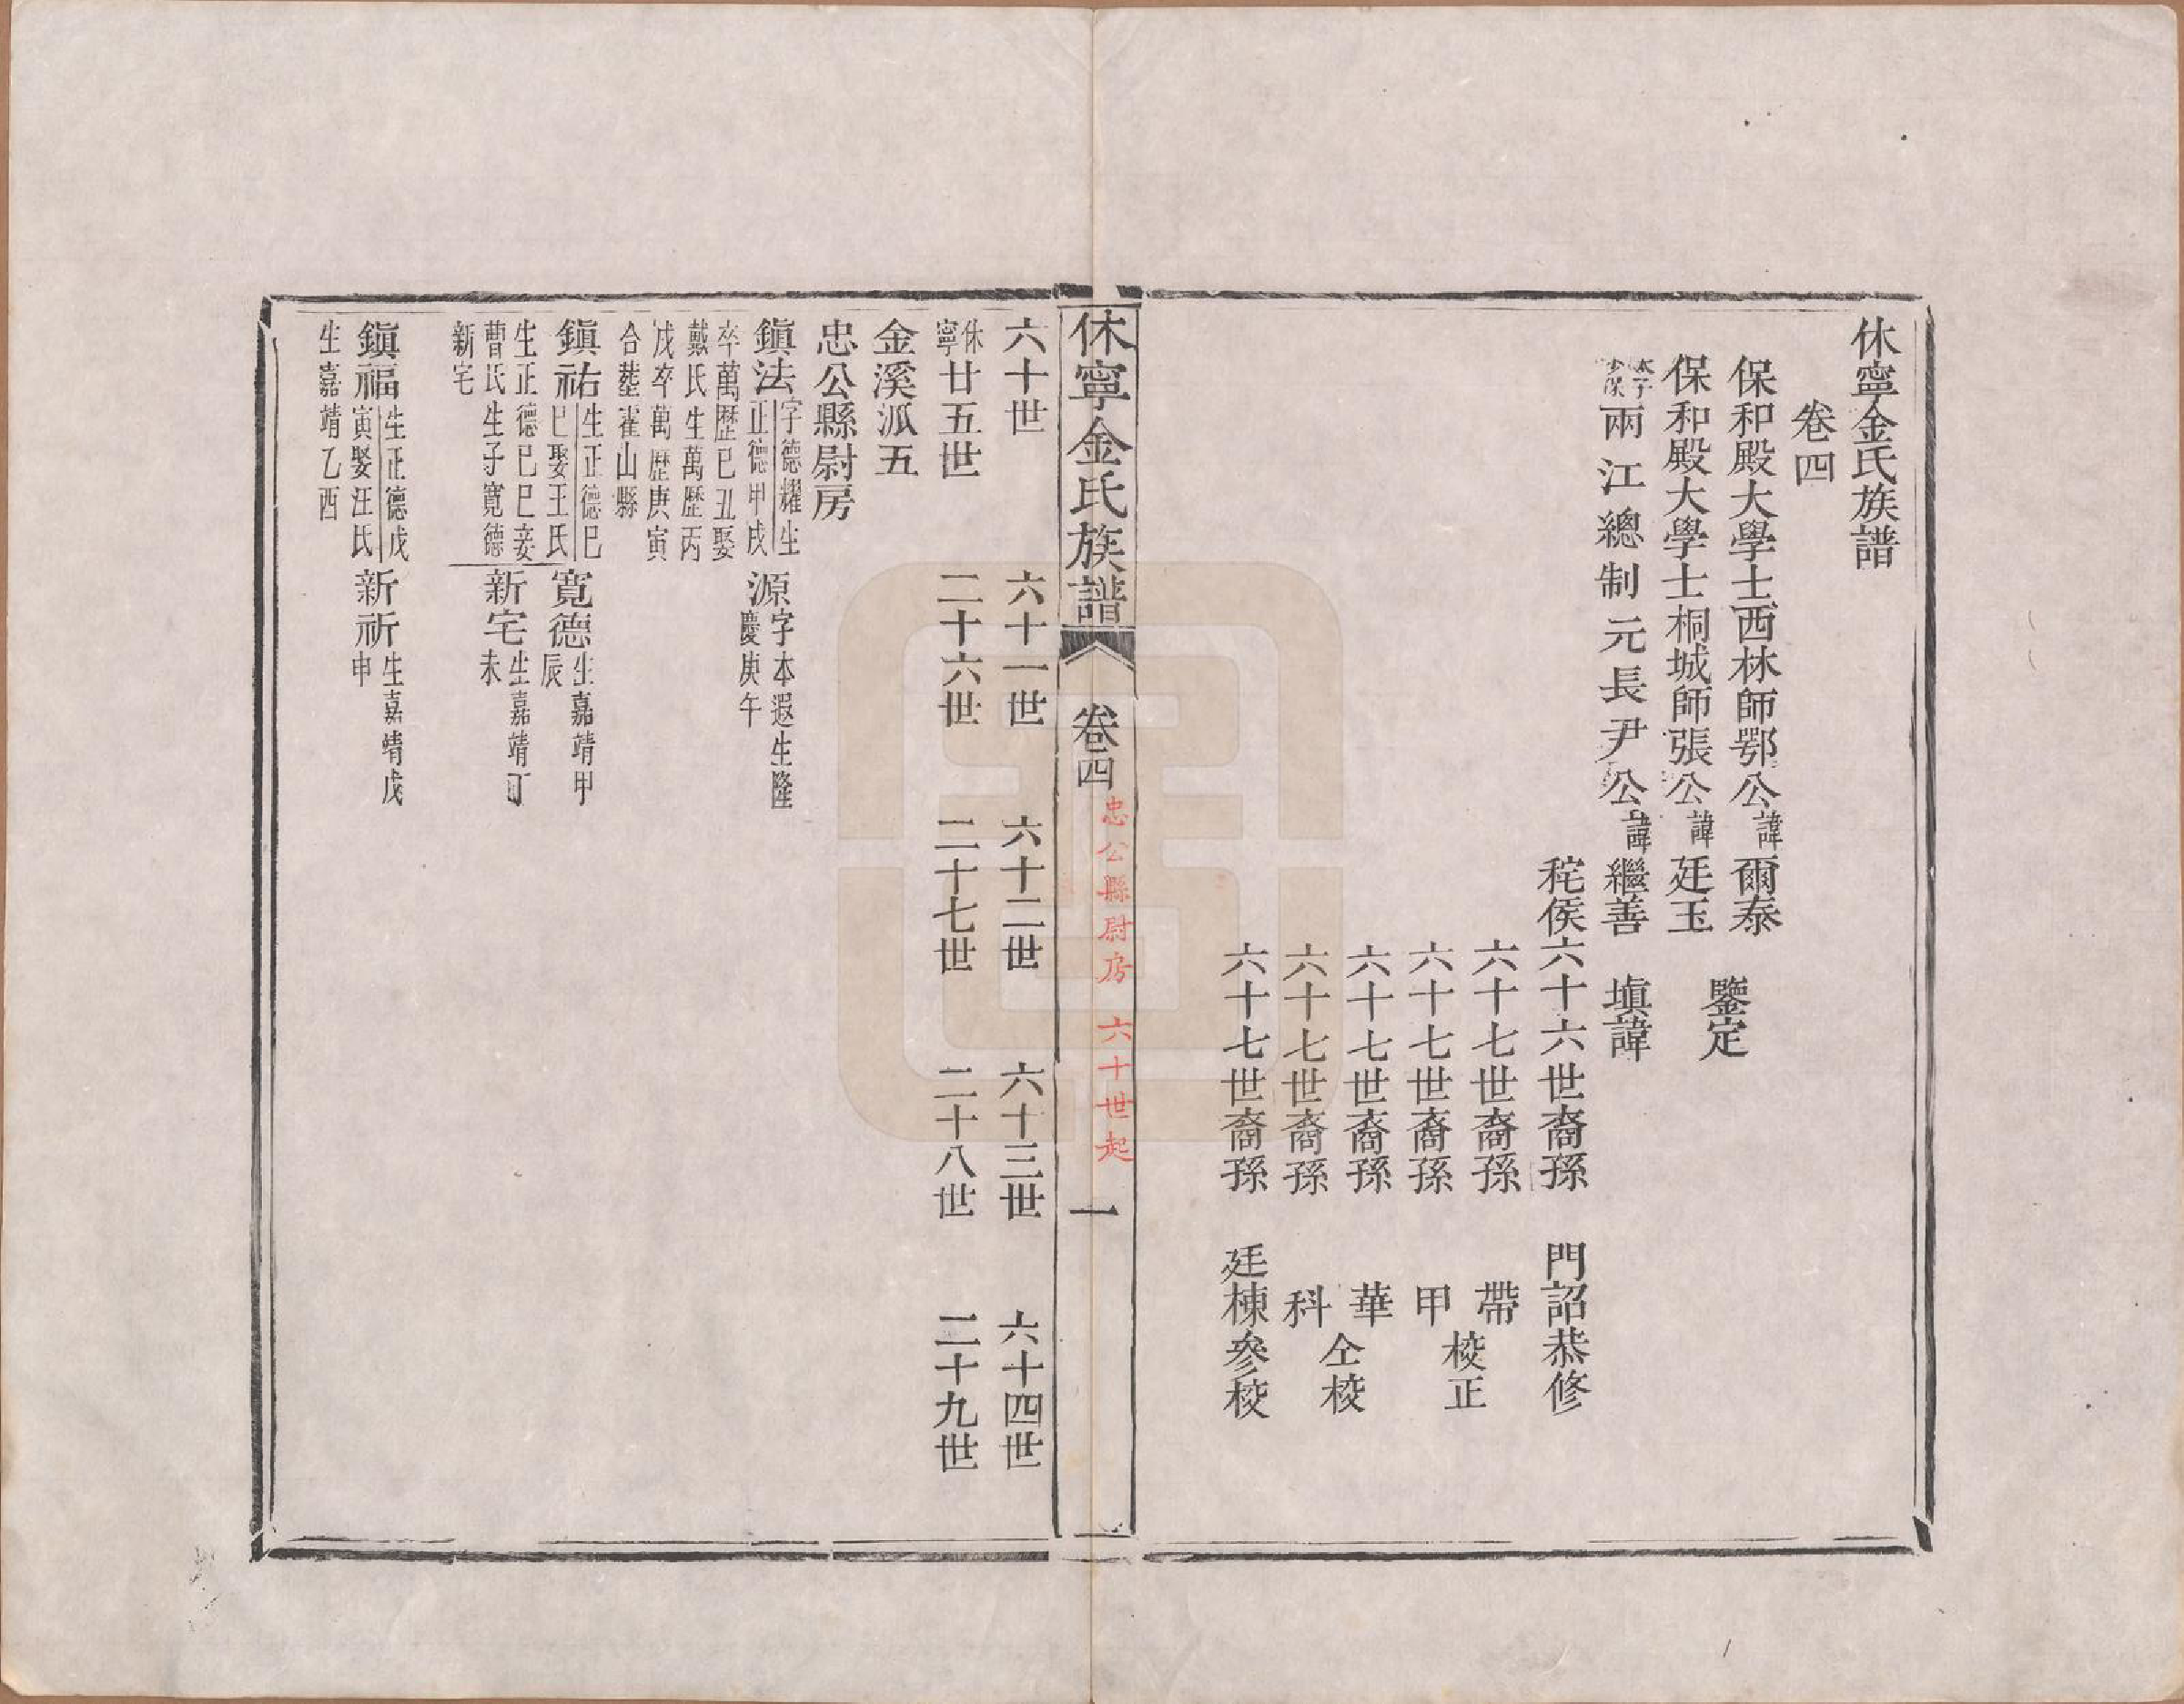 休寧金氏族譜
卷四
保和殿大學士西林師鄂公諱爾泰
保和殿大學士桐城師張公諱廷玉
鑒定
太子少保兩江總制元長尹公諱繼善 塡諱
秺侯六十六世裔孫 門詔恭修
六十七世裔孫 帶
六十七世裔孫 甲
校正
六十七世裔孫 華
六十七世裔孫 科
仝校
六十七世裔孫 廷棟參校
休寧金氏族譜 卷四 忠公縣尉房 六十世起 一
六十世 六十一世 六十二世 六十三世 六十四世
休寧廿五世 二十六世 二十七世 二十八世 二十九世
金溪派五
忠公縣尉房
鎭法 字德耀生正德甲戌
卒萬歷己丑娶
戴氏生萬歷丙
戌卒萬歷庚寅
合塟雀山縣
源 字本遐生隆慶庚午
鎭祐 生正德己巳娶王氏
生正德己巳妾
曹氏生子寬德
新宅
寬德 生嘉靖甲辰
新宅 生嘉靖丁未
鎭福 生正德戊寅娶汪氏
生嘉靖乙酉
新祈 生嘉靖戊申